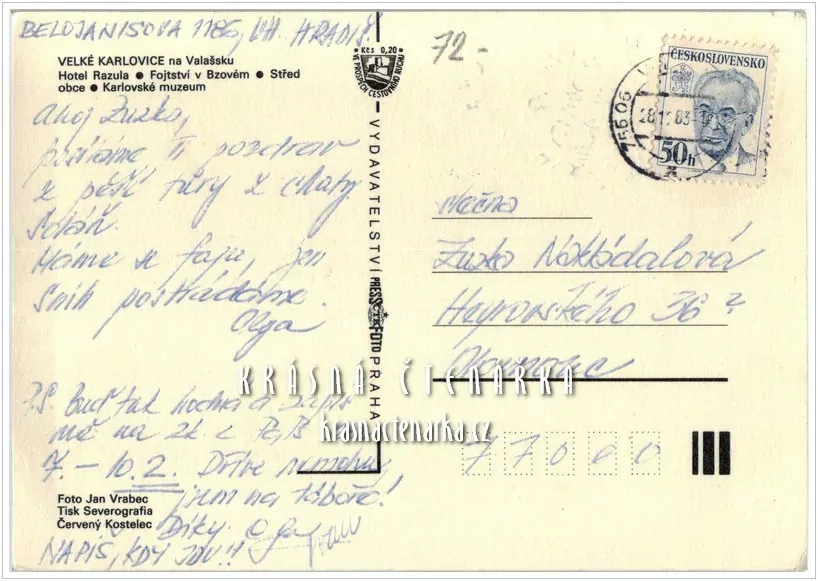 BELOJANISOVA 1186, UH. HRADIŠ.
72,-
VELKÉ KARLOVICE na Valašsku
Hotel Razula ● Fojtství v Bzovém ● Střed
obce ● Karlovské muzeum
Kčs 0,20
VE PROSPĚCH CESTOVNÍHO RUCHU
ČESKOSLOVENSKO
50h
756 06
Ahoj Zuzko,
posíláme Ti pozdrav
z pěší túry z chaty
Soláň.
Máme se fajn, jen
sníh postrádáme.
Olga
P.S. Buď tak hodná a zapiš
mě na zk. z
7. – 10.2. Dříve nemohu,
jsem na táboře!
Díky. Olga
NAPIŠ, KDY JDU!!
VYDAVATELSTVÍ PRESSFOTO PRAHA
ČTK
Slečna
Zuzka Nakládalová
Heyrovského 36
Olomouc
77000
KRÁSNÁ ČTENÁRKA
krasnactenarka.cz
Foto Jan Vrabec
Tisk Severografia
Červený Kostelec